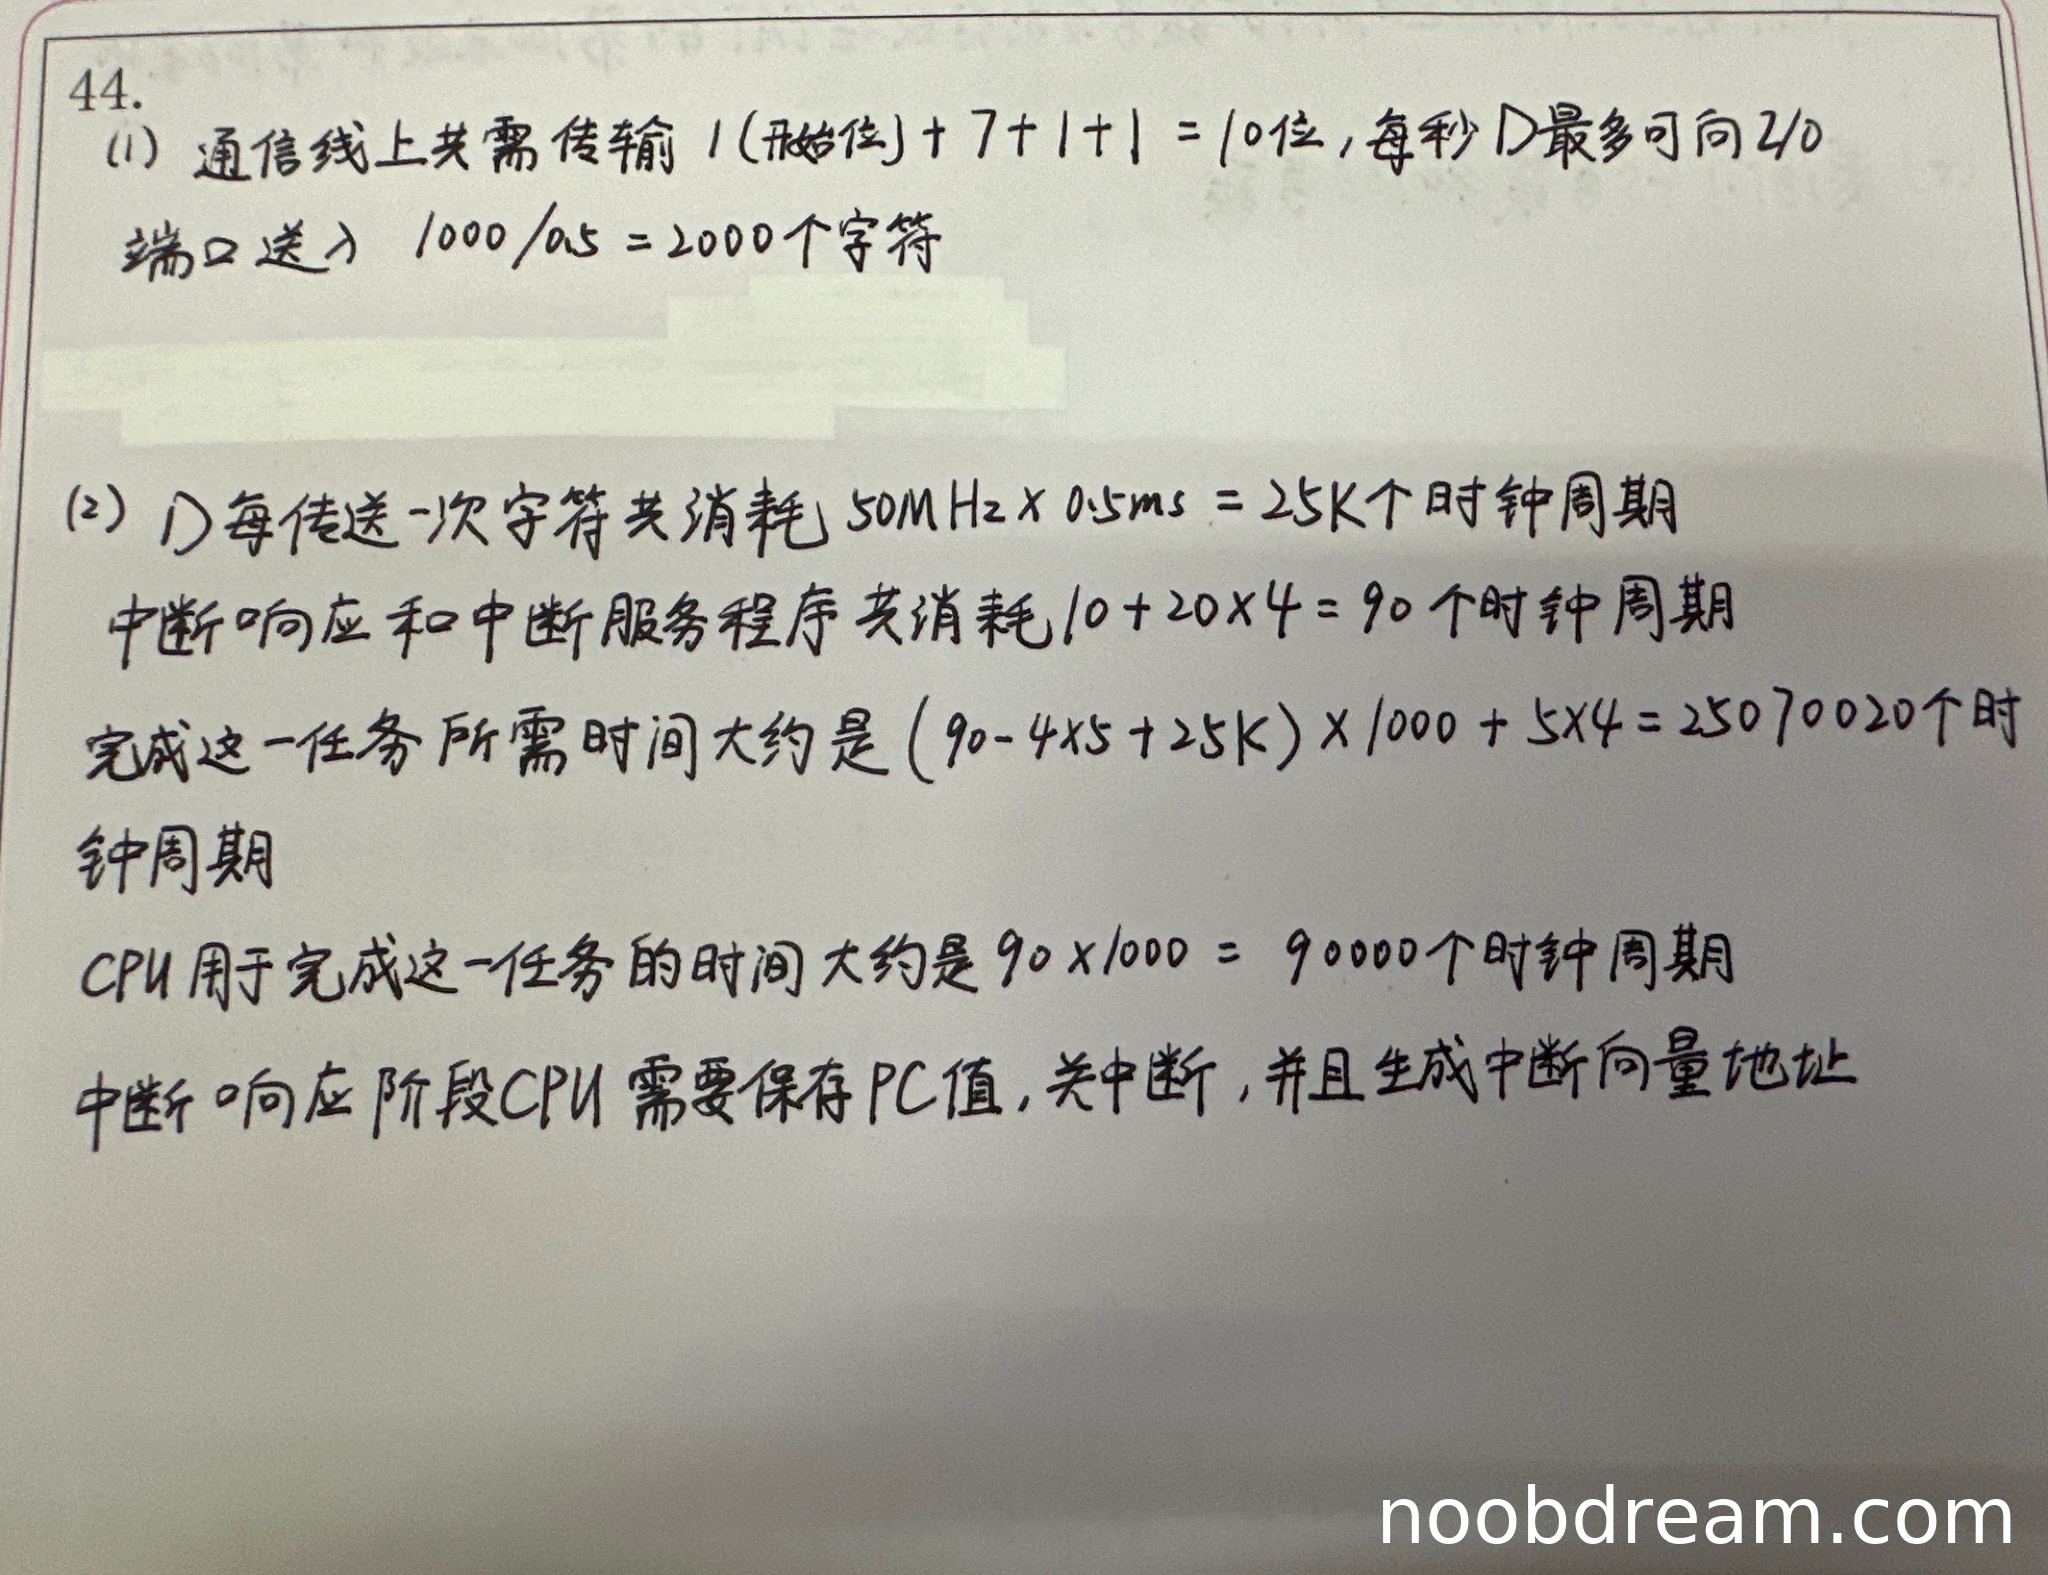 44.
(1) 通信线上共需传输 1(开始位)+7+1+1=10位,每秒D最多可向I/O
端口送入 1000/0.5=2000个字符
(2) D每传送一次字符共消耗50MHz×0.5ms=25K个时钟周期
中断响应和中断服务程序共消耗10+20×4=90个时钟周期
完成这一任务所需时间大约是(90-4×5+25K)×1000+5×4=25070020个时
钟周期
CPU用于完成这一任务的时间大约是90×1000=90000个时钟周期
中断响应阶段CPU需要保存PC值,关中断,并且生成中断向量地址
noobdream.com